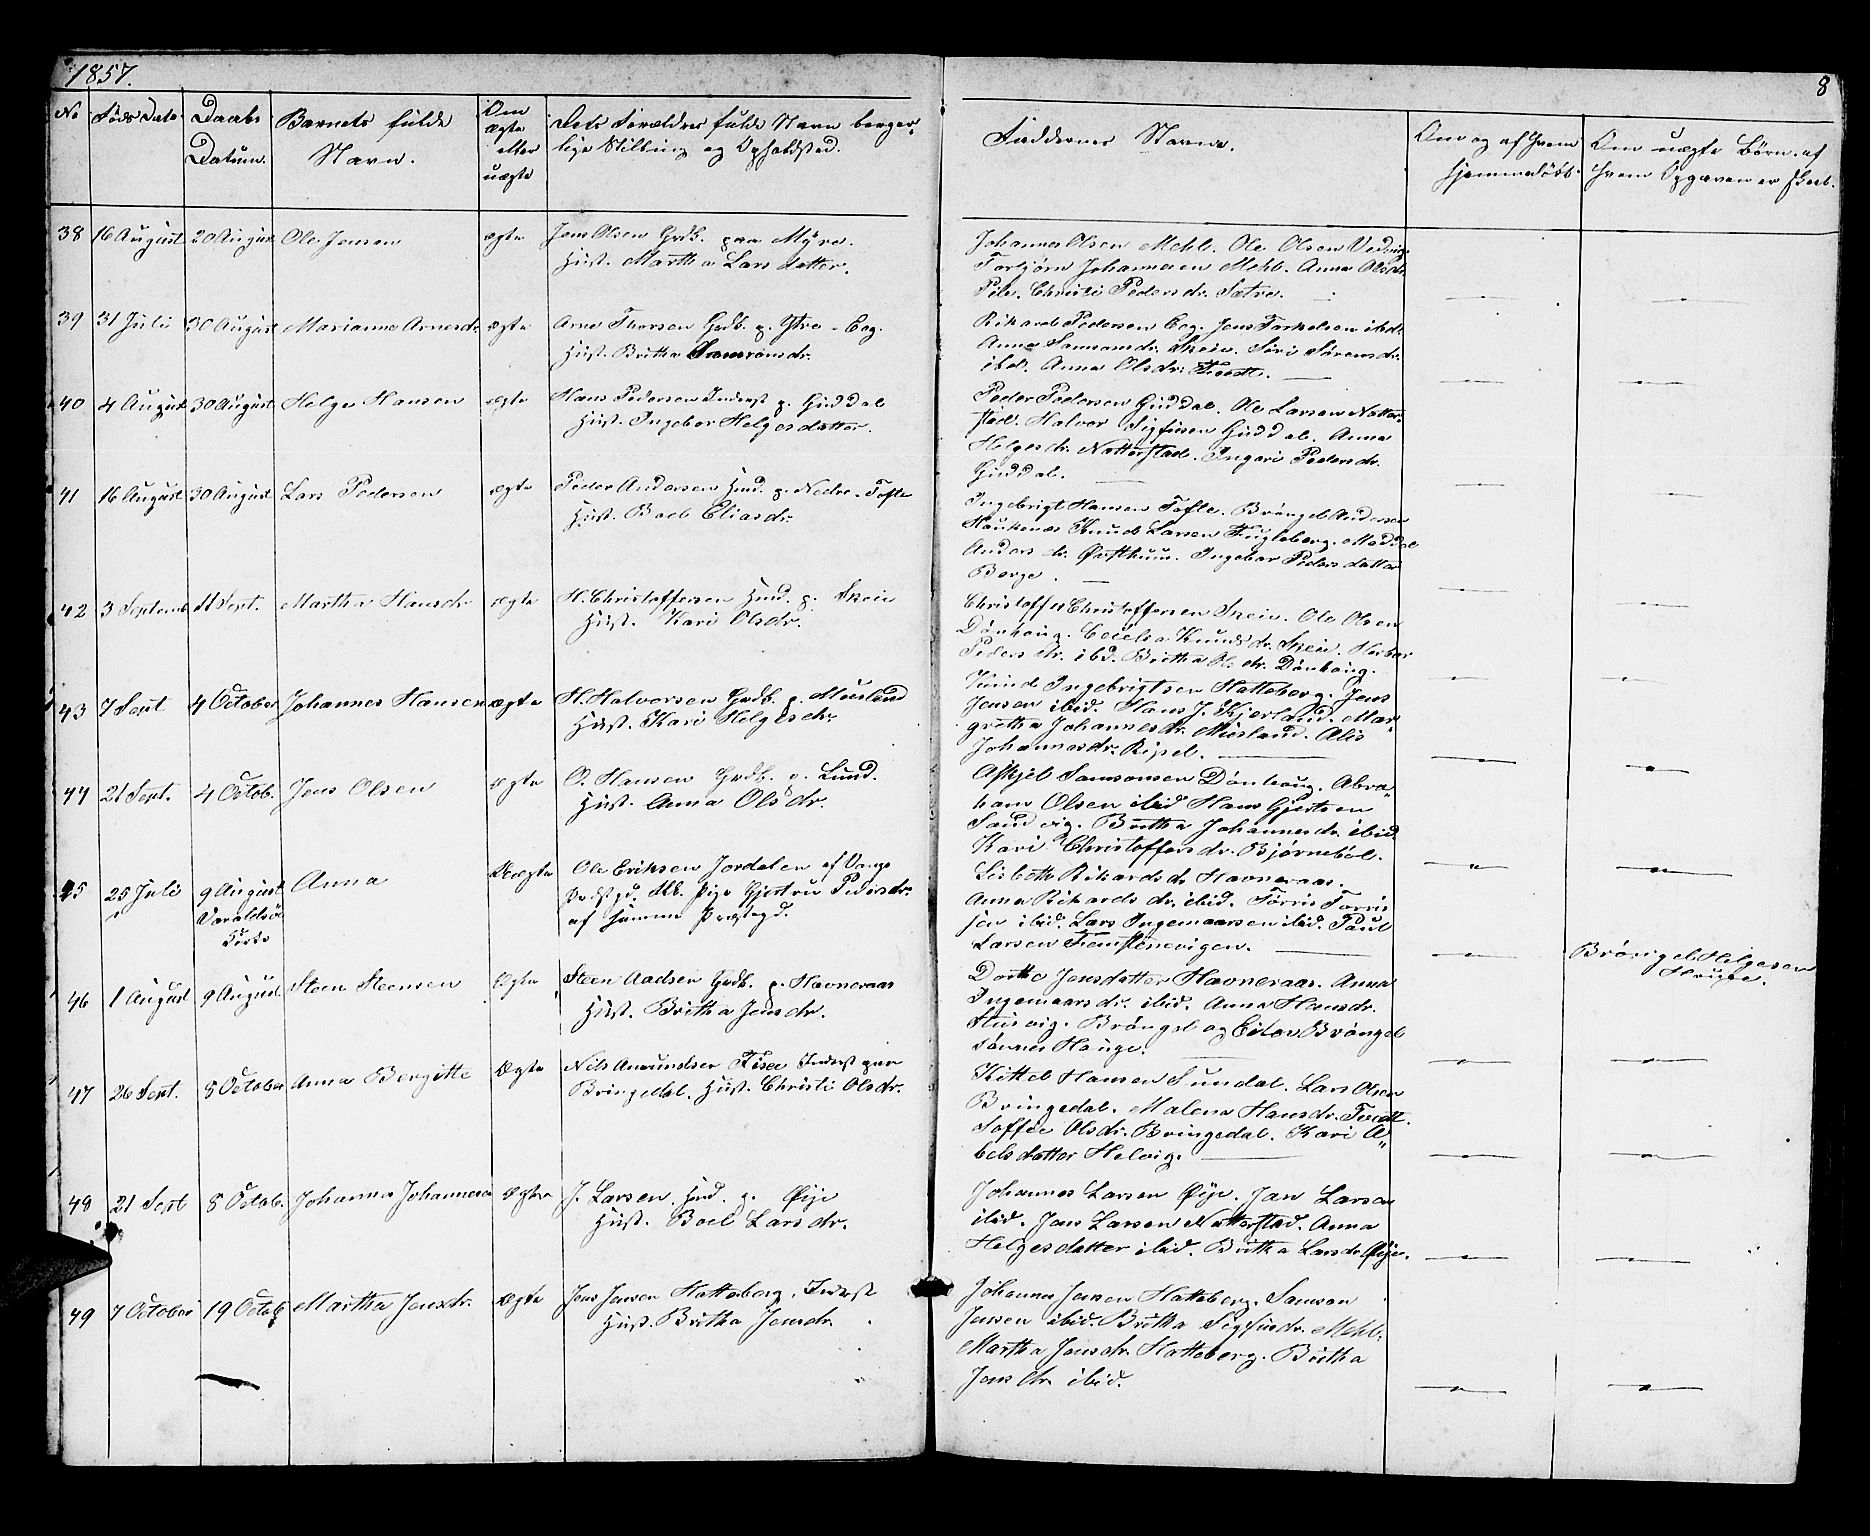 1857.
8
No Föds Dato Daabs Datum. Barnets fulde Navn. Om ægte eller uægte Dets Forældres fulde Navn borgerlige Stilling og Opholdsted.
Faddernes Navne. Om og af hvem hjemmedöbt. Om uægte Börn, af hvem Opgaven er skeet.
38 16 August 20 August Ole Jensen ægte Jens Olsen Grdb. paa Myre.
Hust. Martha Larsdatter.
Johannes Olsen Mehl. Ole Olsen Vedvig
Torbjörn Johannesen Mehl. Anna Olsdr.
Pile. Christi Pedersdr. Sætre.
39 31 Juli 30 August Marianna Arnesdr. ægte Arne Thorsen Grdb. p. Ytre-Eeg.
Hust. Britha Samsonsdr.
Rikard Pedersen Eeg. Jens Torkelsen ibd.
Anna Samsonsdr. Skeie. Siri Sörensdr.
ibd. Anna Olsdr. Tvedte.
40 4 August 30 August Helge Hansen ægte Hans Pedersen Inderst p. Guddal
Hust. Ingebor Helgesdatter.
Peder Pedersen Guddal. Ole Larsen Natterstad.
Halvor Sigfusen Guddal. Anna
Helgesdr. Natterstad. Ingeri Pedersdr.
Guddal.
41 16 August 30 August Lars Pedersen ægte Peder Andersen Hmd. p. Nedre-Tofte
Hust. Boel Eliasdr.
Ingebrigt Hansen Tofte. Bröngel Andersen
Haukenæs Knud Larsen Fugleberg.
Andersdr. Östhuun. Ingebor Pedersdatter
Berge.
42 3 Septemb 11 Sept. Martha Hansdr. ægte H. Christoffersen Hmd. p. Skeie
Hust. Kari Olsdr.
Christoffer Christoffersen Skeie. Ole Olsen
Dönhaug. Knudsdr. Skeie. Herbor
Pedersdr. ibd. Britha Olsdr. Dönhaug.
43 7 Sept 4 October Johannes Hansen ægte H. Halvorsen Grdb. p. Muusland
Hust. Kari Helgesdr.
Knud Ingebrigtsen Hatteberg. Jens
Jensen ibid. Hans J. Kjerland. Margretha
Johannesdr. Musland. Alis
Johannesdr. Ripel.
44 21 Sept. 4 Octob. Jens Olsen ægte O. Hansen Grdb. p. Lund.
Hust. Anna Olsdr.
Askjel Samsonsen Dönhaug. Abraham
Olsen ibid Hans Gjertsen
Sandvig. Britha Johannesdr. ibid
Kari Christoffersdr. Björneböl.
45 25 Juli 9 August Varaldsö Kirke Anna Uægte Ole Eriksen Jordalen af Vangs
Præstgd. Ntk. Pige Gjertru Pedersdr.
af samme Præstegd.
Lisbeth Rikardsdr Havneraas.
Anna Rikardsdr. ibid. Törris Torrissen
ibid. Lars Ingemaarsen ibid. Paul
Larsen Femstenevigen.
Bröngel Helgesen
46 1 August 9 August Steen Steensen Ægte Steen Aadsen Grdb. p. Havneraas
Hust. Britha Jensdr.
Dorthe Jensdatter Havneraas. Anna
Ingemaarsdr. ibid. Anna Hansdr.
Bröngel og Eilov Bröngelsönner
Hauge.
47 26 Sept. 8 October Anna Bergitte Ægte Nils Amundsen Risa Inderst paa
Bringedal. Hust. Christi Olsdr.
Kittel Hansen Sundal. Lars Olsen
Bringedal. Malena Hansdr. Tvedt.
Soffie Olsdr. Bringedal. Kari Abelsdatter
Helvig.
48 21 Sept 8 Octob. Johanna Johannesen Ægte J. Larsen Hmd. p. Öye
Hust. Boel Larsdr.
Johannes Larsen Öye. Jan Larsen
ibid. Jens Larsen Natterstad. Anna
Helgesdatter ibid. Britha Larsdr Öye.
49 7 October 19 Octob Martha Jensdr. Ægte Jens Jensen Hatteberg. Inderst
Hust. Britha Jensdr.
Johannes Jensen Hatteberg. Samson
Jensen ibid. Britha Sigfusdr. Mehl.
Martha Jensdr. Hatteberg. Britha
Jensdr ibid.